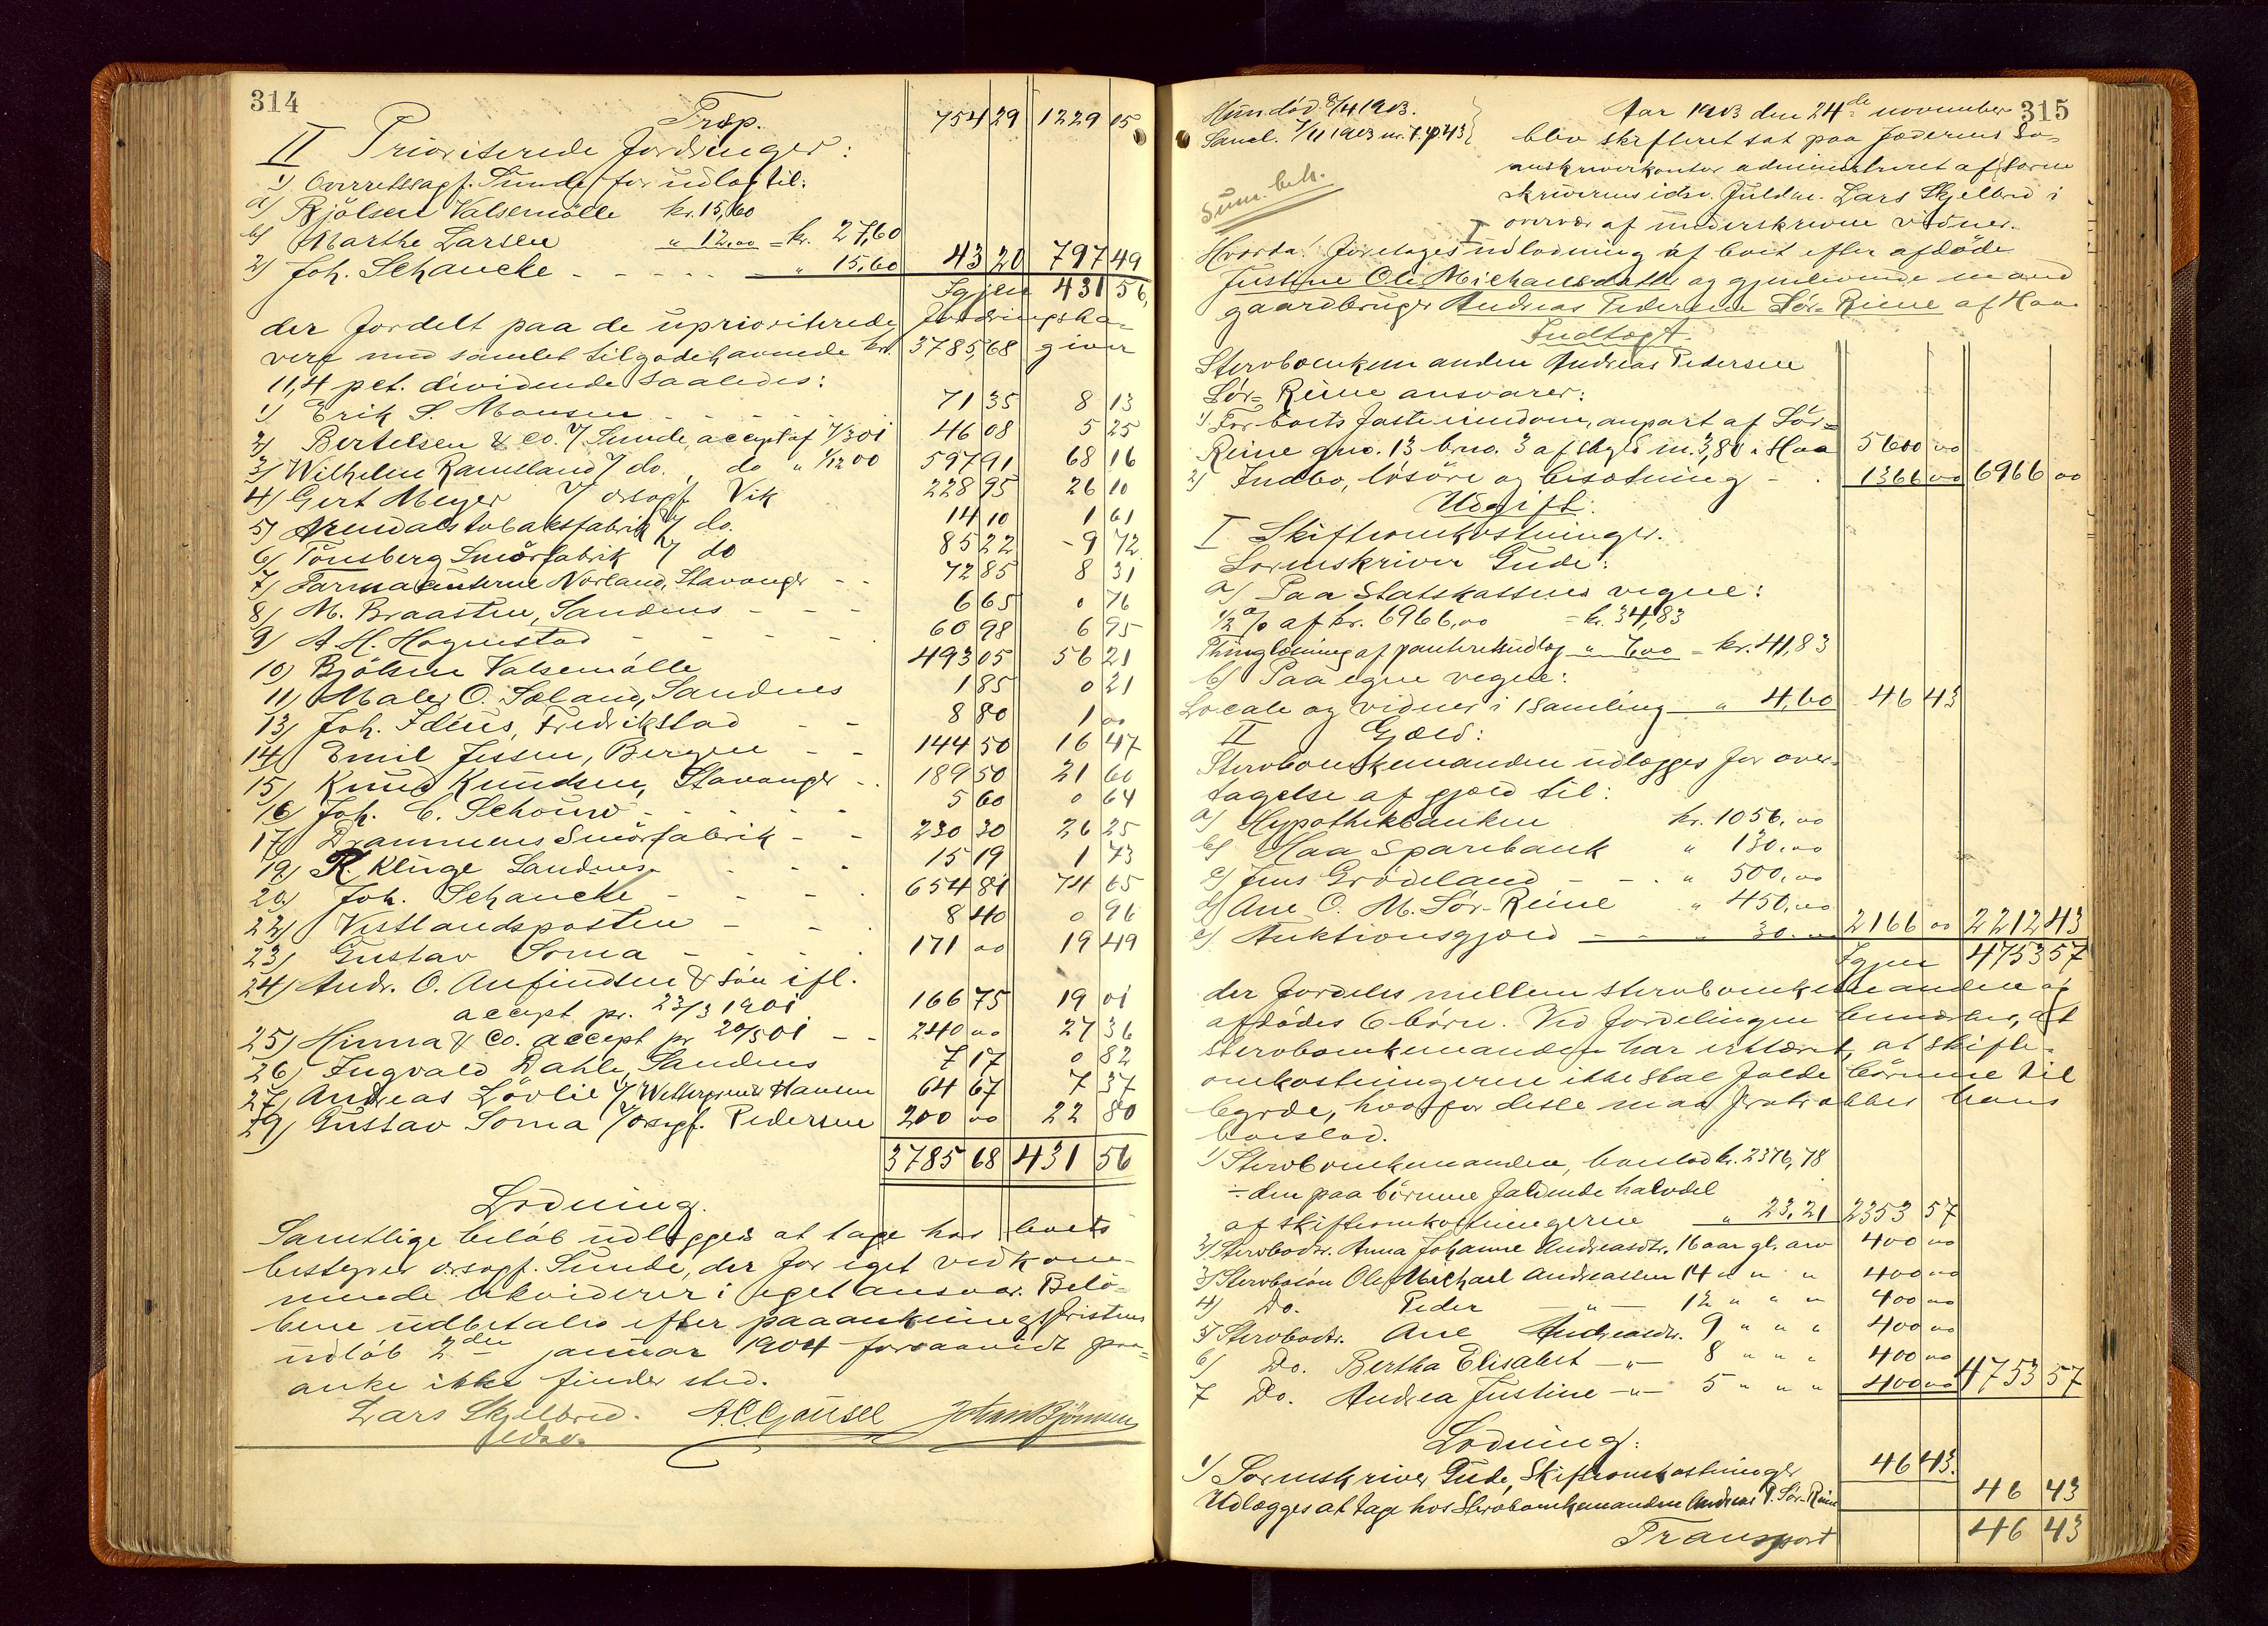 314
Trsp. 754 29 1229 05
II Prioriterede fordringer:
1) Overretssagf. Sunde for udlæg til:
a) Bjölsen Valsemölle kr. 15,60
b) Marthe Larsen " 12,00 = kr. 27,60
2) Joh. Schancke - - - - - " 15,60 43 20 797 49
Igjen 431 56,
der fordelt paa de uprioriterede fordringsha-
vere med samlet tilgodehavende kr. 3785,68 giver
11,4 pct. dividende saaledes:
1) Erik S. Monsen - - - - - 71 35 8 13
2) Bertelsen & Co. v/ Sunde, accept af 7/3 01 46 08 5 25
3) Wilhelm Ramsland v/ do. " do " 1/12 00 597 91 68 16
4) Gert Meyer v/ orsagf. Vik 228 95 26 10
5) Arendals tobaksfabrik v/ do. 14 10 1 61
6) Tönsberg Smörfabrik v/ do 85 22 - 9 72
7) Farmaceuterne Norland, Stavanger - - 72 85 8 31
8) M. Braasten, Sandnes - - - 6 65 0 76
9) A. H. Hognestad - - - - - 60 98 6 95
10) Bjölsen Valsemölle 493 05 56 21
11) Maler O. Soland, Sandnes 1 85 0 21
13) Joh. Ideus, Fredrikstad - - 8 80 1 00
14) Emil Jessen, Bergen - - 144 50 16 47
15) Knud Knudsen, Stavanger - . 189 50 21 60
16) Joh. C. Schouw - - - - - 5 60 0 64
17) Drammens Smörfabrik - - 230 30 26 25
19) R. Kluge Sandnes - - - - 15 19 1 73
20) Joh. Schancke - - - - 654 81 74 65
22) Vestlandsposten - - . 8 40 0 96
23) Gustav Soma - - - . 171 00 19 49
24) Andr. O. Anfindsen & Sön ifl.
accept pr. 23/3 1901 166 75 19 01
25) Hinna & Co. accept pr 20/5 01 - - 240 00 27 36
26) Ingvald Dahle, Sandnes 7 17 0 82
27) Andreas Lövlie v/ Hansen 64 67 7 37
29) Gustav Soma v/ orsagf. Pedersen 200 00 22 80
3785 68 431 56
Lodning.
Samtlige beløb udlægges at tage hos boets
bestyrer orsagf. Sunde, der for eget vedkom-
mende likviderer i eget ansvar. Belö-
bene udbetales efter paaankningsfristens
udløb 2den januar 1904 forsaavidt paa-
anke ikke finder sted.
Lars Skjelbred. A. C. Gausel Johan Bjönnsen
edsv.
315
Hun död 8/4 1903.
Saml. 7/11 1903 nr. 7. p. 43
Sum. beh.
Aar 1903 den 24de november
blev skifteret sat paa Jæderens So-
renskriverkontor administreret af Soren-
skriverens edsv. fuldm. Lars Skjelbred i
overvær af underskrevne vidner.
Hvorda: Foretoges udlodning af boet efter afdöde
Justine Ole Michaelsdatter og gjenlevende mand
gaardbruger Andreas Pedersen Sör-Reime af Haa.
Indtægt.
Stervboenkemanden Andreas Pedersen
Sör-Reime ansvarer:
1) For boets faste eiendom, anpart af Sör-
Reime gno. 13 brno. 3 af skyld m. 3,80 i Haa 5600 00
2) Indbo, lösöre og besætning - . 1366 00 6966 00
Udgift.
I Skifteomkostninger.
Sorenskriver Gude:
a) Paa Statskassens vegne:
1/2 % af kr. 6966,00 = kr. 34,83
Thinglæsning af panteretsudlæg " 7,00 = kr. 41,83
b) Paa egne vegne:
Locale og vidner i 1 samling - " 4,60 46 43
II Gjæld:
Stervboenkemanden udlægges for over-
tagelse af gjæld til:
a) Hypothekbanken kr. 1056,00
b) Haa Sparebank " 130,00
c) Jens Grödeland - - . " 500,00
d) Ane O. M. Sör-Reime " 450,00
e) Auktionsgjæld - - - " 30.00 2166 00 2212 43
Igjen 4753 57
der fordeles mellem stervboenkemanden og
afdödes 6 börn. Ved fordelingen bemærkes, at
stervboenkemanden har erklæret, at skifte-
omkostningerne ikke skal falde börnene til
byrde, hvorfor disse maa fratrækkes hans
boeslod.
1) Stervboenkemanden, boeslod kr. 2376,78
÷ den paa börnene faldende halvdel
af skifteomkostningerne " 23,21 2353 57
2) Stervbodtr. Anna Johanne Andreasdtr. 16 aar gl. arv 400 00
3) Stervbosön Ole Michael Andreassen 14 " " " 400 00
4) Do. Peder - " - 12 " " " 400 00
5) Stervbodtr. Ane Andreasdtr. 9 " " " 400 00
6) Do. Bertha Elisabet - " - 8 " " " 400 00
7 Do. Andrea Justine - " - 5 " " " 400 00 4753 57
Lodning:
1) Sorenskriver Gude, Skifteomkostninger 46 43.
Udlægges at tage hos Stervboenkemanden Andreas P. Sör-Reime 46 43
Transport 46 43